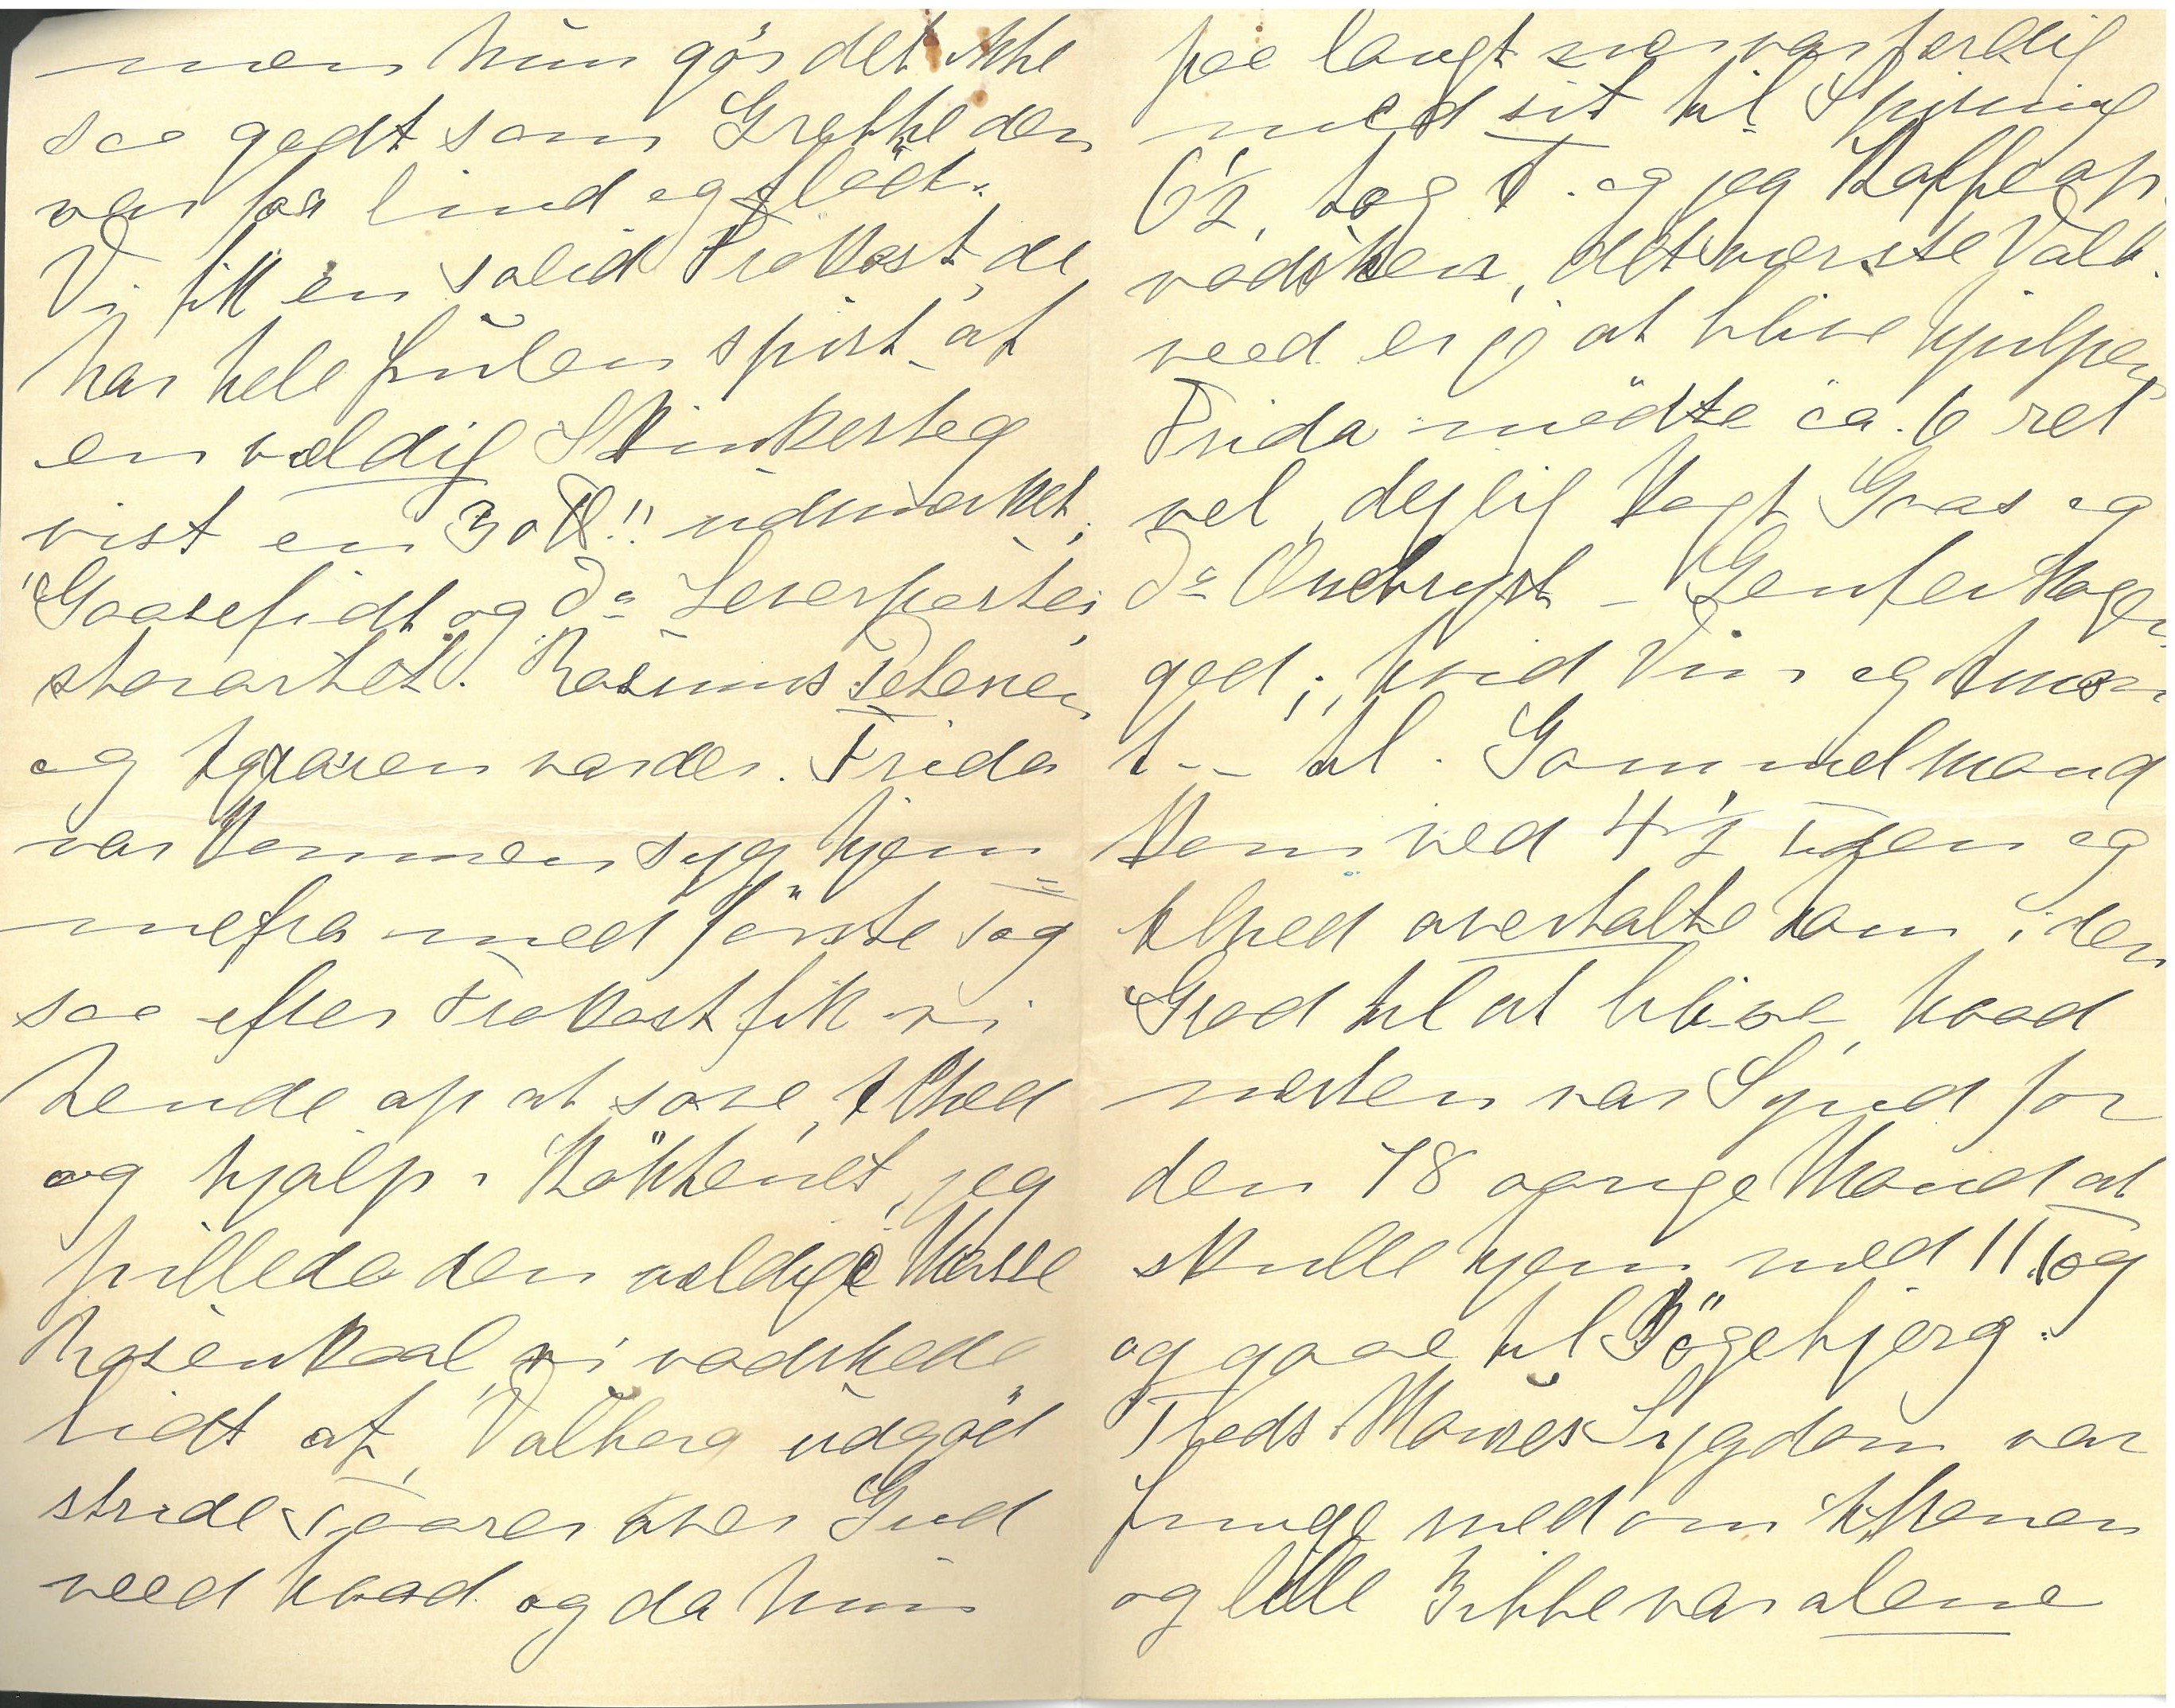 men hun gör det ikke
saa godt som Grethe den
var for lind og flödt.
Vi fik en solid Frokost, de
har hele Julen spist af
en vældig Skinkesteg
vist en 30 ℔!! udmærket,
"Gaasefidt og Do Leverpostei
storartet. Rasmus Petersen
og Konen var der. Frida
var kommen syg hjem=
mefra med förste Tog
saa efter Frokost fik vi
hende op at sove, Thed
og hjalp i Kökkenet, jeg
pillede den vældige Masse
Rosenkaal, vi vadskede
lidt af, Valborg udgöd
stride Taarer over Gud
veed hvad og da hun
paa langt nær var færdig
med sit til Spisning
6½, tog T. og jeg Kaffeop
vadsken, det værste Valb.
veed er jo at blive hjulpen,
Frida mødte ca. 6 ret
vel, dejlig kogt Gaas og
Do Andbryst - Genferkage,
god, hvid Vin og
t-- til. Gammelmand
kom ved 4½ Tiden og
Thed overtalte ham i den
Grad til at blive, hvad
næsten var Synd for
den 78 aarige Mand at
skulle hjem med 11 Tog
og gaae til Bögebjerg.
Theds Maries Sygdom var
Junge med om
og lille Bibbe var alene